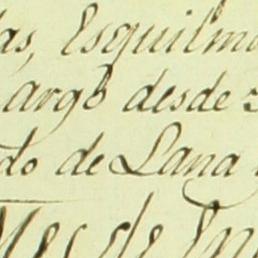 as, Esquilm
argo desde
do de Lana
Mes de En